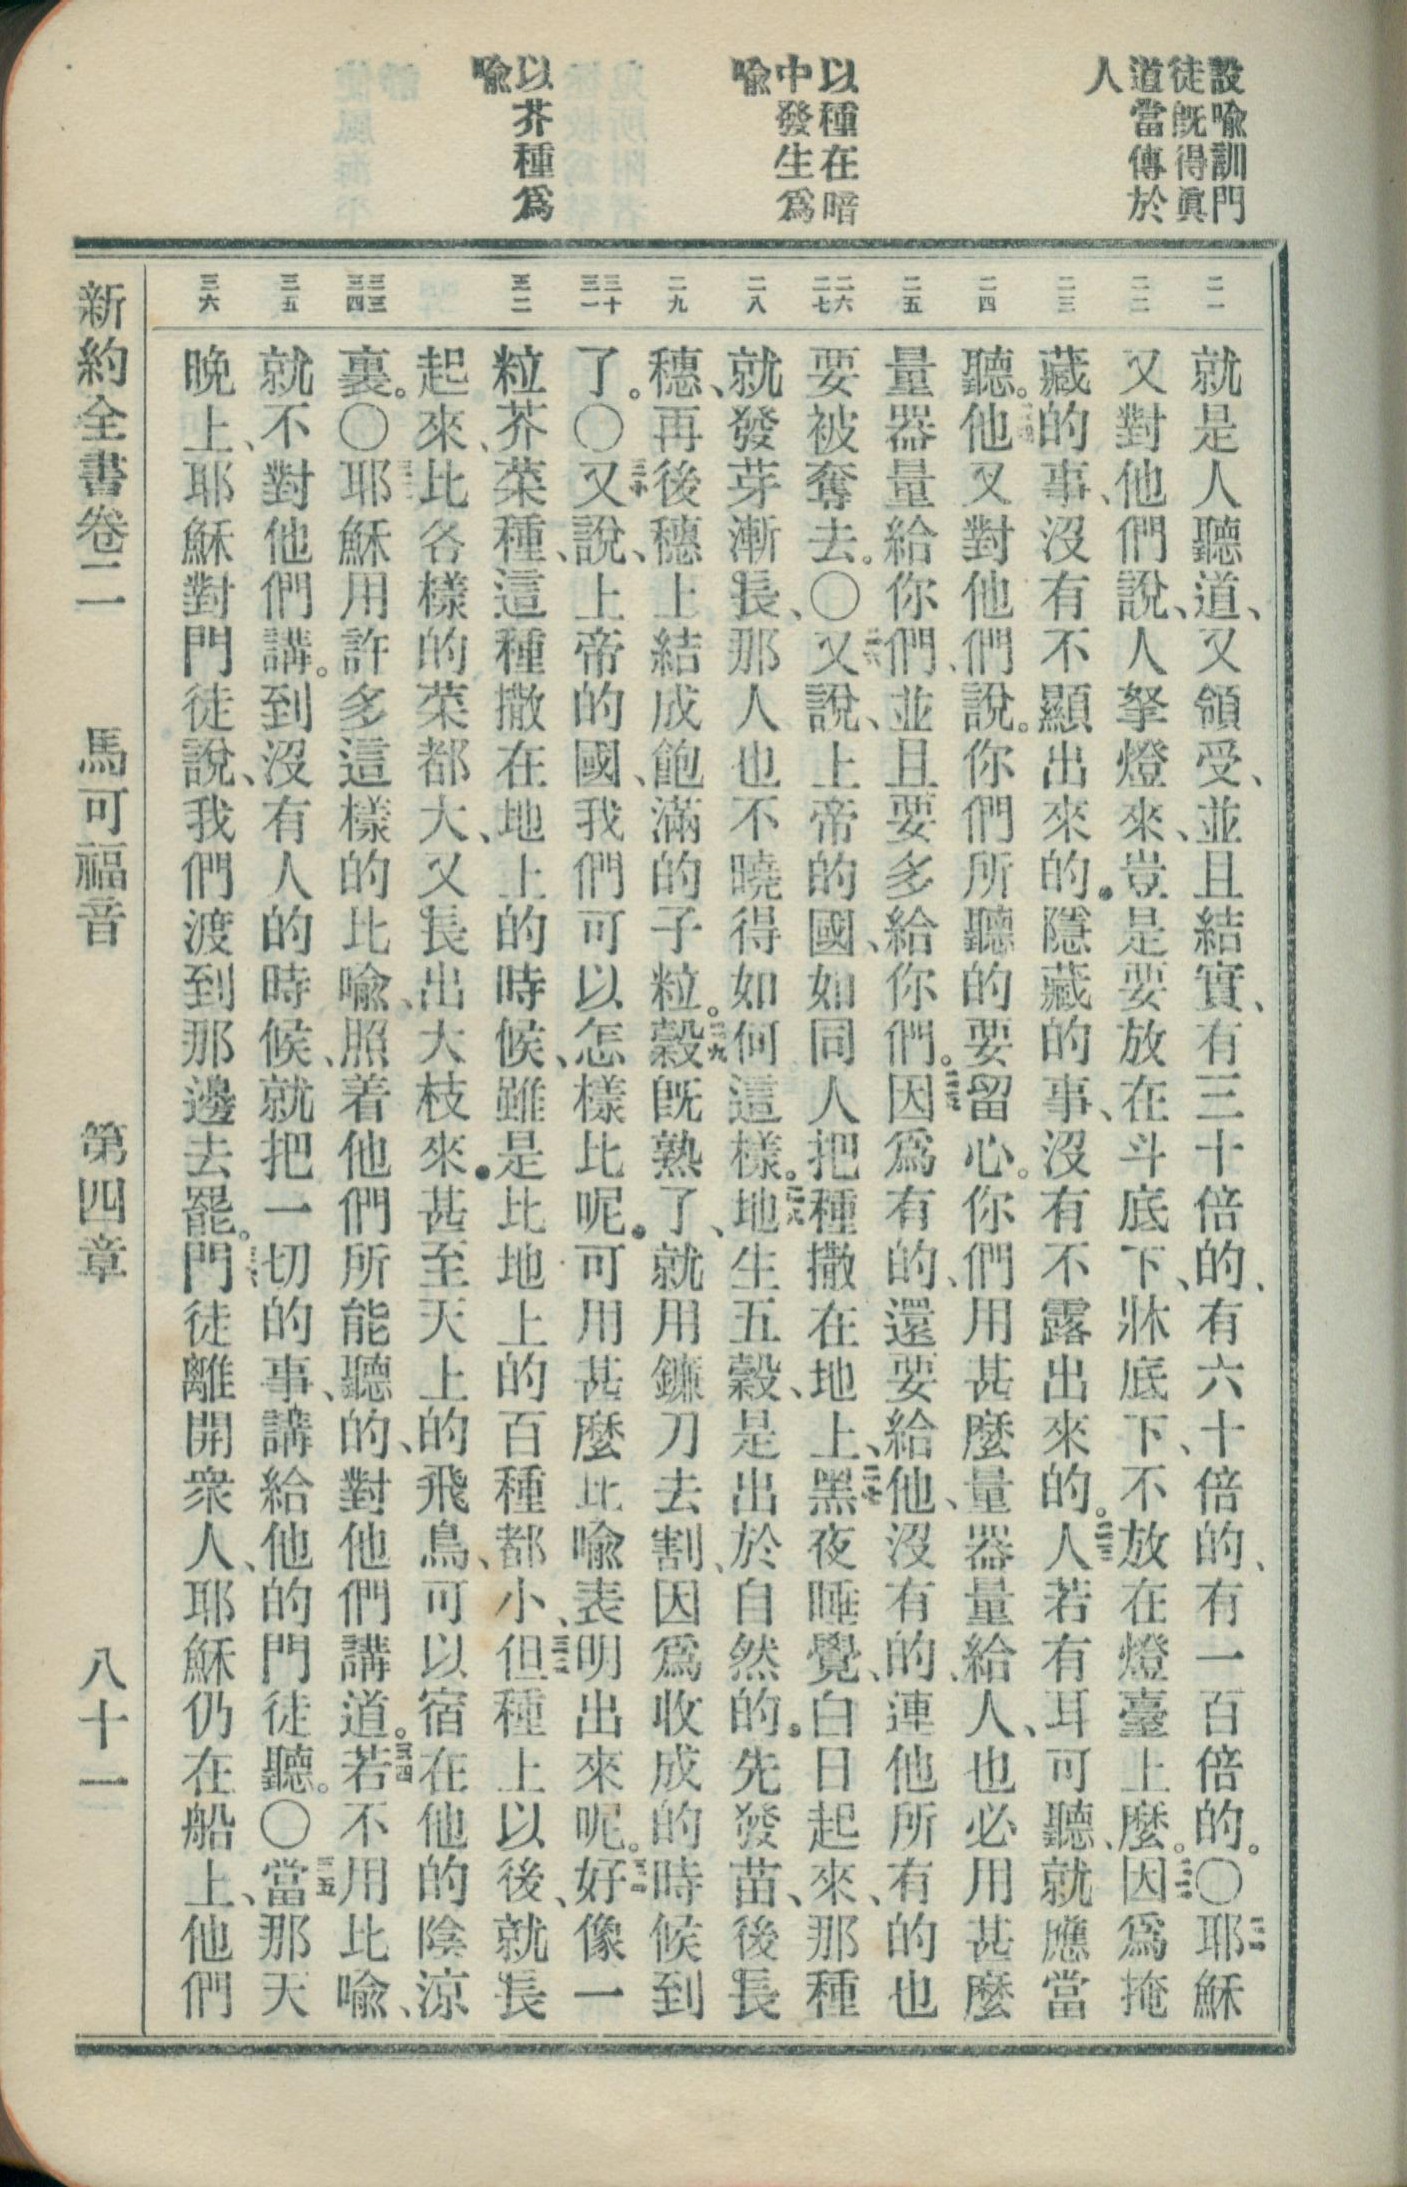 設喻訓門
徒既得眞
道當傳於
人
以種在暗
中發生爲
喻
以芥種爲
喻
二一
二二
二三
二四
二五
二六
二七
二八
二九
三十
三一
三二
三三
三四
三五
三六
就是人聽道、又領受、並且結實、有三十倍的、有六十倍的、有一百倍的。〇二一耶穌
又對他們說、人拏燈來、豈是要放在斗底下、牀底下、不放在燈臺上麽。二二因爲掩
藏的事、沒有不顯出來的．隱藏的事、沒有不露出來的。二三人若有耳可聽、就應當
聽。二四他又對他們說。你們所聽的要留心。你們用甚麽量器量給人、也必用甚麽
量器量給你們、並且要多給你們。二五因爲有的、還要給他、沒有的、連他所有的也
要被奪去。〇二六又說、上帝的國、如同人把種撒在地上、二七黑夜睡覺、白日起來、那種
就發芽漸長、那人也不曉得如何這樣。二八地生五穀、是出於自然的．先發苗、後長
穗、再後穗上結成飽滿的子粒。二九穀既熟了、就用鐮刀去割、因爲收成的時候到
了。〇三十又說、上帝的國、我們可以怎樣比呢．可用甚麽比喻表明出來呢。三一好像一
粒芥菜種、這種撒在地上的時候、雖是比地上的百種都小、三二但種上以後、就長
起來、比各樣的菜都大、又長出大枝來．甚至天上的飛鳥、可以宿在他的陰涼
裏。〇三三耶穌用許多這樣的比喻、照着他們所能聽的、對他們講道。三四若不用比喻、
就不對他們講。到沒有人的時候、就把一切的事、講給他的門徒聽。〇三五當那天
晚上、耶穌對門徒說、我們渡到那邊去罷。三六門徒離開衆人、耶穌仍在船上、他們
新約全書卷二　馬可福音　第四章　八十一